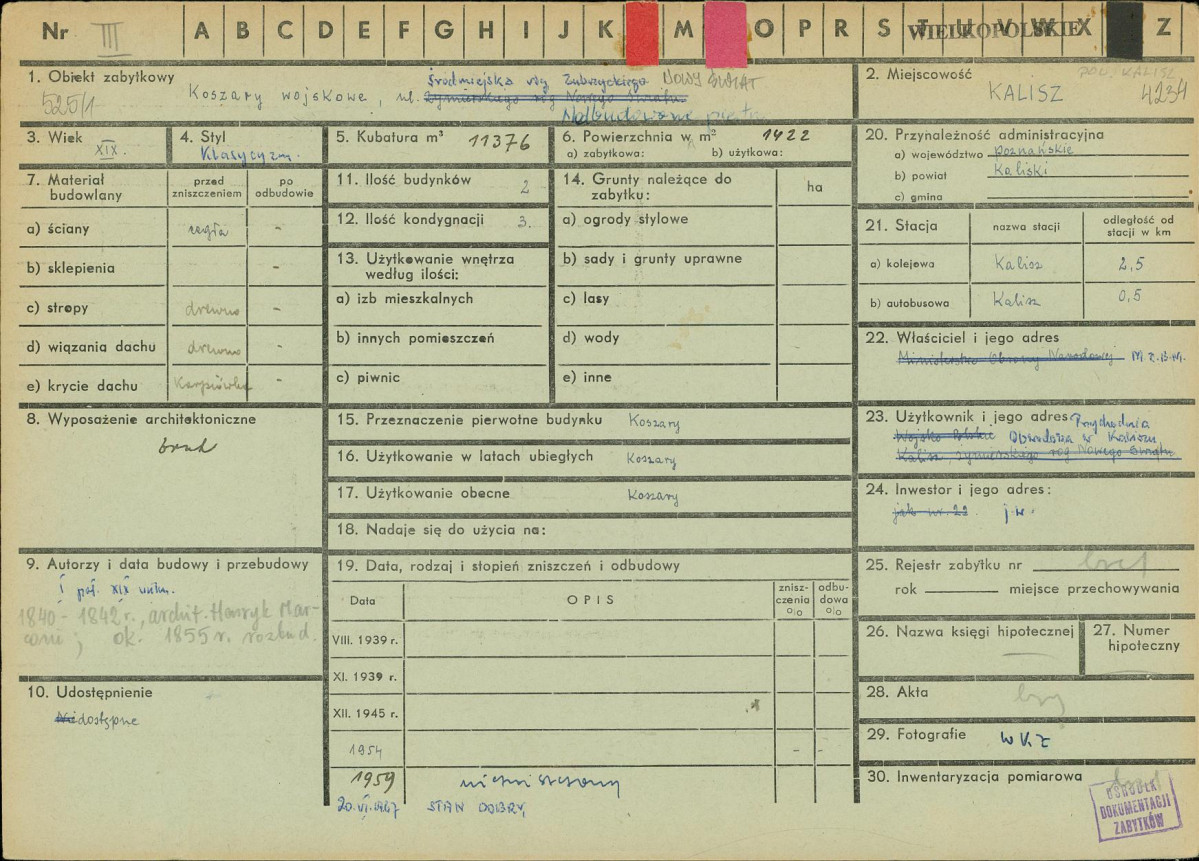 Nr III A B C D E F G H I J K M O P R S T U V W X Z
WIELKOPOLSKIE
1. Obiekt zabytkowy
525/1
Śródmiejska róg Zubrzyckiego NOWY ŚWIAT
Koszary wojskowe, ul. Żymierskiego róg Nowego Światu
Nadbudowane piętro
2. Miejscowość
POW. KALISZ
KALISZ 4234
3. Wiek
XIX.
4. Styl
Klasycyzm.
5. Kubatura m³ 11376
6. Powierzchnia w m² 1422
a) zabytkowa: b) użytkowa:
20. Przynależność administracyjna
a) województwo poznańskie
b) powiat Kaliski
c) gmina
7. Materiał budowlany
przed zniszczeniem
po odbudowie
a) ściany cegła -
b) sklepienia -
c) stropy drewno -
d) wiązania dachu drewno -
e) krycie dachu Karpiówka -
11. Ilość budynków 2
12. Ilość kondygnacji 3.
13. Użytkowanie wnętrza
według ilości:
a) izb mieszkalnych
b) innych pomieszczeń
c) piwnic
14. Grunty należące do
zabytku:
ha
a) ogrody stylowe
b) sady i grunty uprawne
c) lasy
d) wody
e) inne
21. Stacja
nazwa stacji
odległość od
stacji w km
a) kolejowa Kalisz 2,5
b) autobusowa Kalisz 0,5
22. Właściciel i jego adres
Ministerstwo Obrony Narodowej
8. Wyposażenie architektoniczne
brak
15. Przeznaczenie pierwotne budynku Koszary
16. Użytkowanie w latach ubiegłych Koszary
17. Użytkowanie obecne Koszary
18. Nadaje się do użycia na:
23. Użytkownik i jego adres Przychodnia
Wojsko Polskie Obwodowa w Kaliszu
Kalisz, Żymierskiego róg Nowego Światu
24. Inwestor i jego adres:
jak nr. 22 j.w.
9. Autorzy i data budowy i przebudowy
I poł. XIX wieku.
1840-1842 r., archit. Henryk Mar-
coni; ok. 1855 r. rozbud.
10. Udostępnienie
Niedostępne
19. Data, rodzaj i stopień zniszczeń i odbudowy
Data
OPIS
znisz-
czenia
%
odbu-
dowa
%
VIII. 1939 r.
XI. 1939 r.
XII. 1945 r.
1954 - -
1959 niezniszczony
20.VI.1967 STAN DOBRY,
25. Rejestr zabytku nr brak
rok miejsce przechowywania
26. Nazwa księgi hipotecznej
27. Numer
hipoteczny
28. Akta
29. Fotografie WKZ
30. Inwentaryzacja pomiarowa brak
OŚRODEK
DOKUMENTACJI
ZABYTKÓW